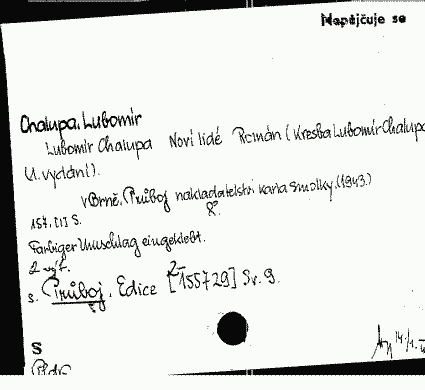 Nepůjčuje se
Chalupa, Lubomír
Lubomír Chalupa Noví lidé Román (Kresba Lubomír Chalupa
(1. vydání).
V Brně, Průboj nakladatelství Karla Smolky, (1943.)
157, [1] S. 8°.
Farbiger Umschlag eingeklebt.
2 výt.
s. Průboj, Edice [2-155729] Sv. 9.
S
14/1.